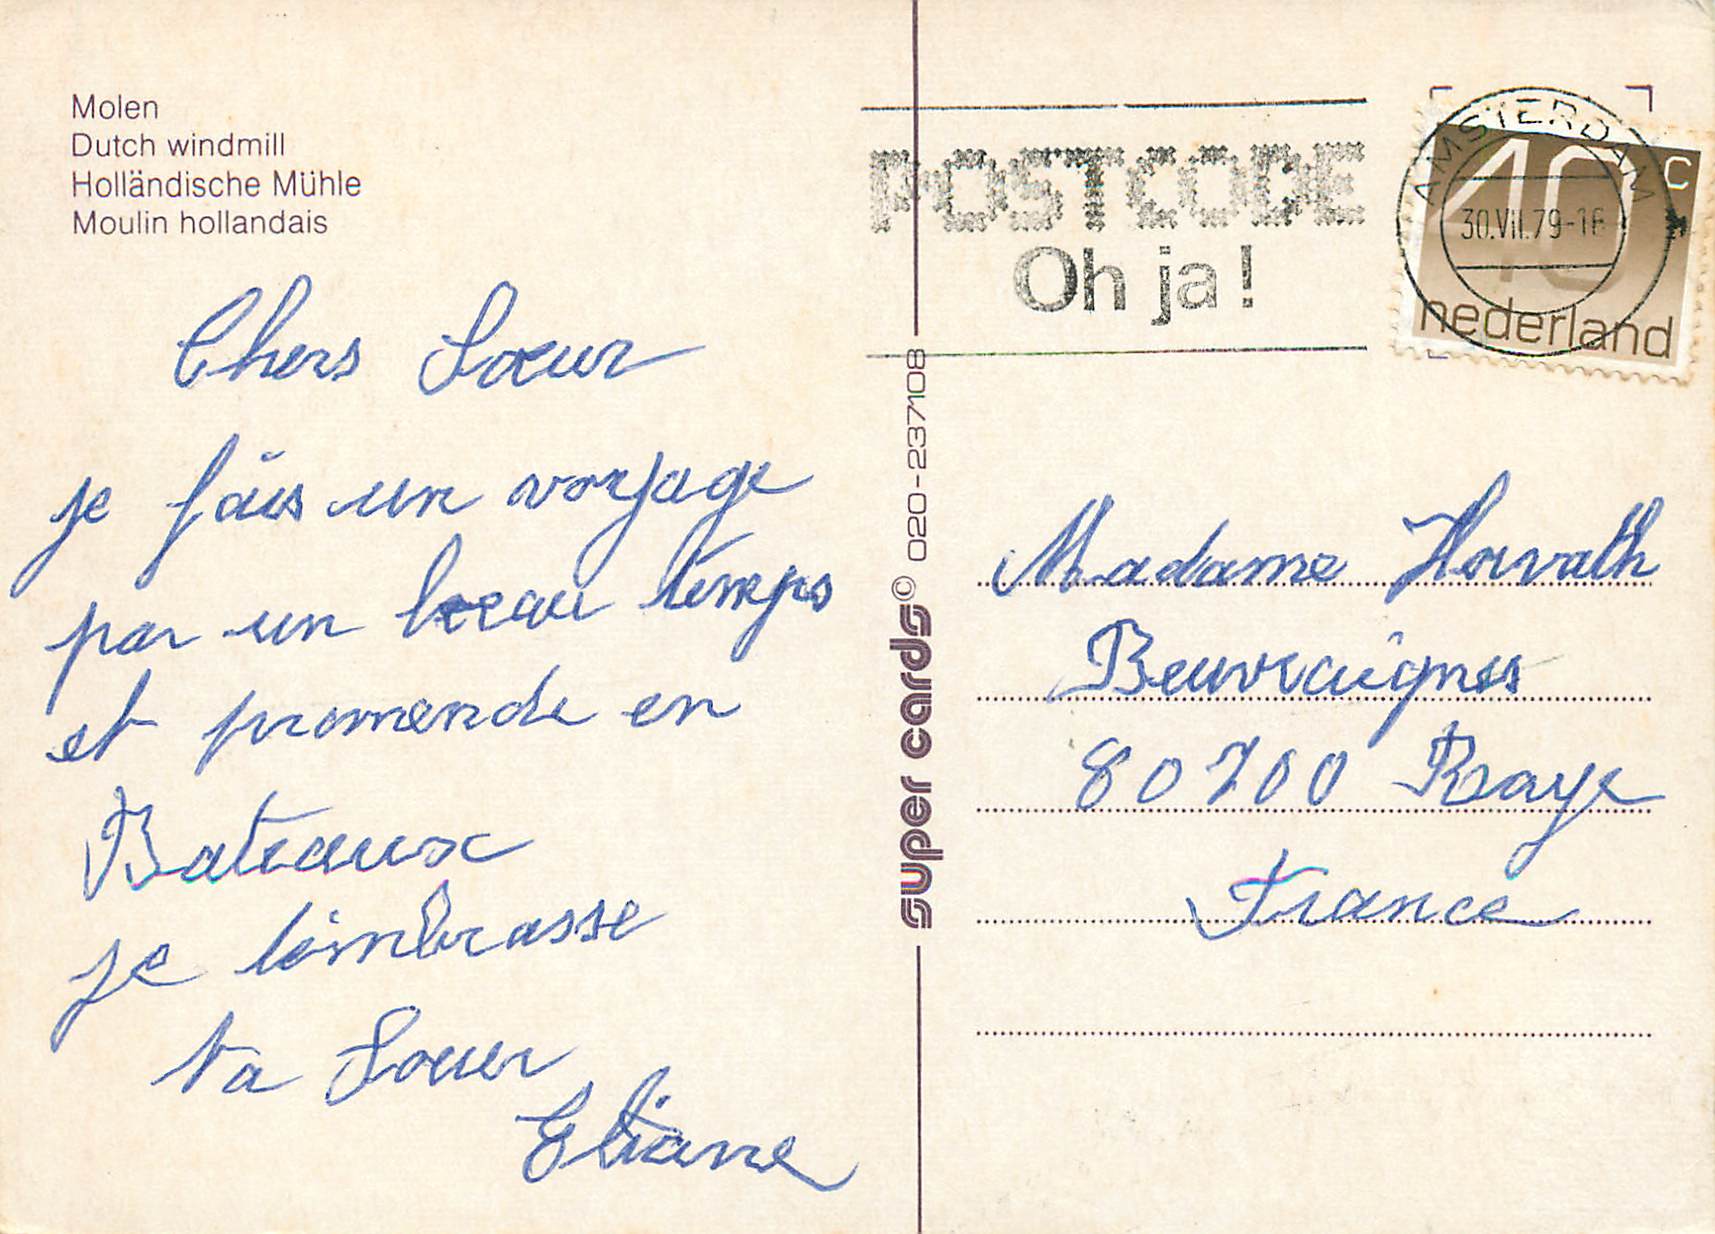 Molen
Dutch windmill
Holländische Mühle
Moulin hollandais
Chers Soeur
je fais un voyage
par un beau temps
et promende en
Bateaux
je t'embrasse
ta Soeur
Eliane
super cards© 020-237108
POSTCODE
Oh ja!
AMSTERDAM
30.VII.79-16
40 c
nederland
Madame Horvath
Beuvraignes
80700 Roye
France